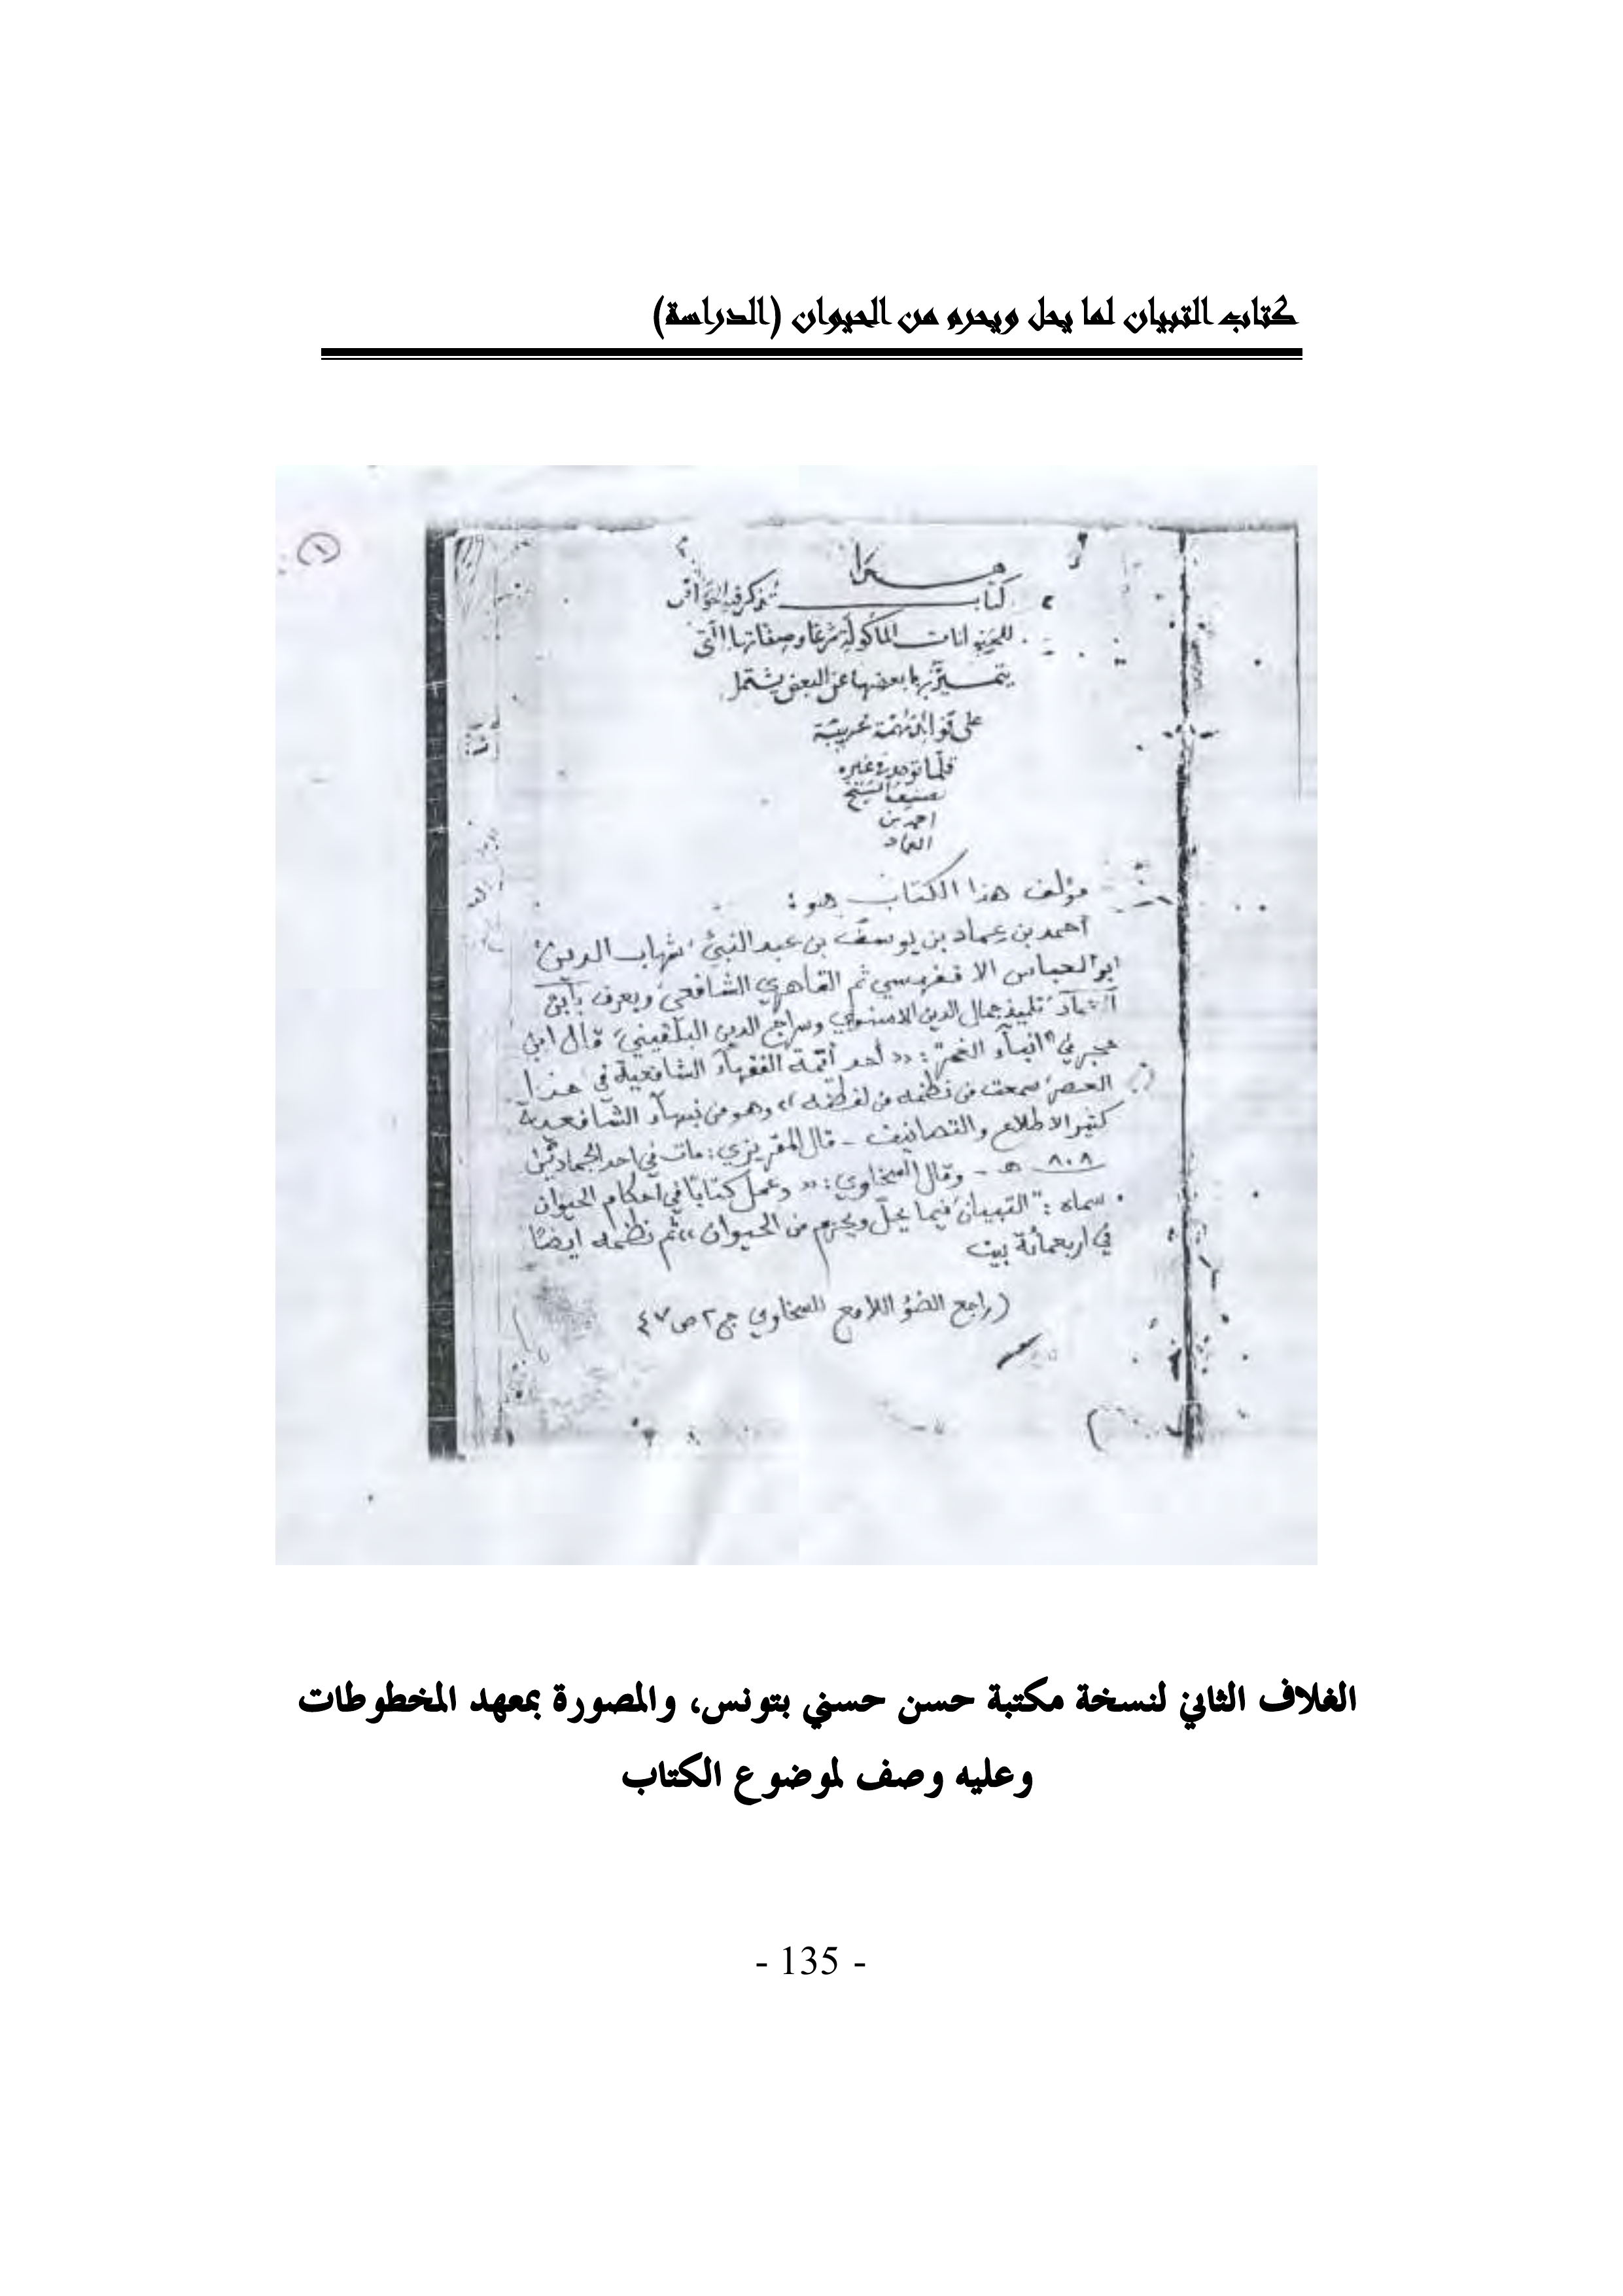 كتاب التبيان لما يحل ويحرم من الحيوان (الدراسة)
١
هذا
كتاب تذكر فيه
للحيوانات المأكولة شرعا وصفاتها التى
يتميز بها بعضها عن البعض يشتمل
على فوائد مهمة غريبة
قلما توجد في غيره
تصنيف الشيخ
احمد بن
العماد
مؤلف هذا الكتاب هو :
أحمد بن عماد بن يوسف بن عبد النبي شهاب الدين
ابو العباس الاقفهسي ثم القاهري الشافعي ويعرف بابن
العماد تلميذ جمال الدين الاسنوي وسراج الدين البلقيني قال ابن
حجر في "انبآء الغمر" : «أحد أئمة الفقهآء الشافعية في هذا
العصر سمعت من نظمه من لفظه» وهو من نبهآء الشافعية
كثير الاطلاع والتصانيف - قال المقريزي : مات في احد الجمادين
٨٠٨ هـ - وقال السخاوي : «وعمل كتابا في أحكام الحيوان
سماه : "التبيان فيما يحل ويحرم من الحيوان» ثم نظمه ايضا
في اربعمائة بيت
(راجع الضؤ اللامع للسخاوي ج ٢ ص ٤٧
الغلاف الثاني لنسخة مكتبة حسن حسني بتونس، والمصورة بمعهد المخطوطات
وعليه وصف لموضوع الكتاب
- 135 -